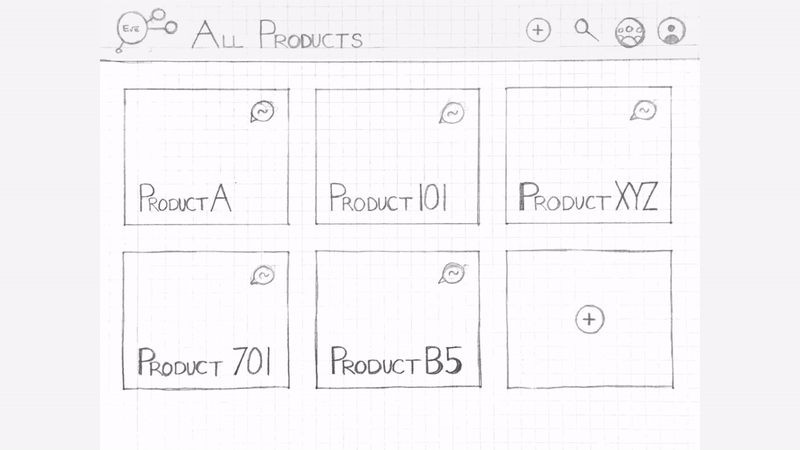 Eve
All Products
Product A
Product 101
Product XYZ
Product 701
Product B5